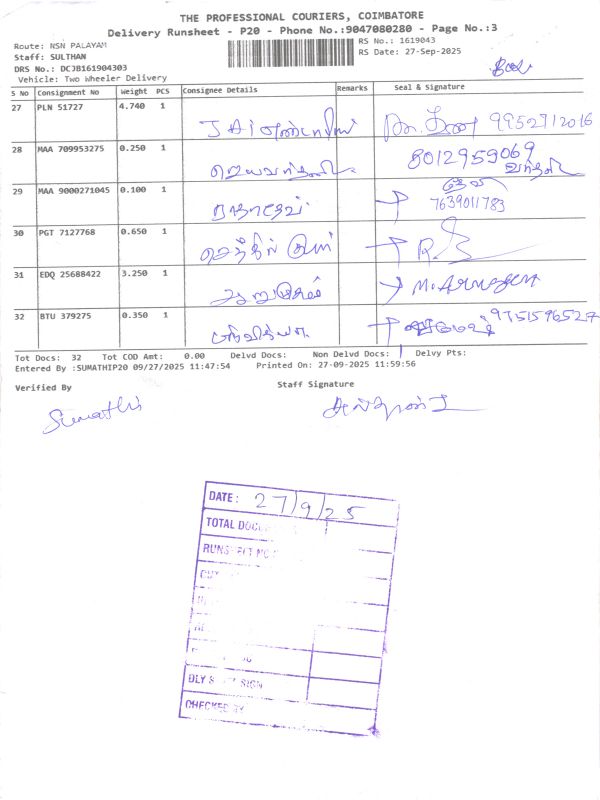 THE PROFESSIONAL COURIERS, COIMBATORE
Delivery Runsheet - P20 - Phone No.:9047080280 - Page No.:3
Route: NSN PALAYAM
RS No.: 1619043
Staff: SULTHAN
RS Date: 27-Sep-2025
DRS No.: DCJB161904303
Vehicle: Two Wheeler Delivery
S No Consignment No Weight PCS Consignee Details Remarks Seal & Signature
27 PLN 51727 4.740 1 JAI 9952912016
28 MAA 709953275 0.250 1 8012959069
29 MAA 9000271045 0.100 1 தேவி
7639011783
30 PGT 7127768 0.650 1 செந்தில் குமார்
31 EDQ 25688422 3.250 1 ஆறுமுகம் M. Arumugam
32 BTU 379275 0.350 1 9751596527
Tot Docs: 32 Tot COD Amt: 0.00 Delvd Docs: Non Delvd Docs: Delvy Pts:
Entered By :SUMATHIP20 09/27/2025 11:47:54 Printed On: 27-09-2025 11:59:56
Verified By Staff Signature
Sumathi
DATE: 27/9/25
TOTAL
DLY SIGN
CHECKED BY